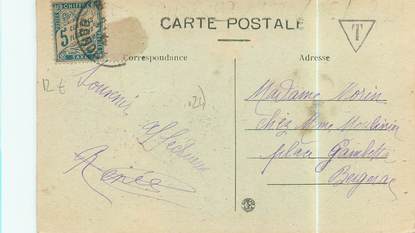 CARTE POSTALE
T
Correspondance
Adresse
CHIFFRE
5
TAXE
12 €
Souvenir
affectueux
Renée
Madame Morin
chez Mme
place Gambetta
Bergerac